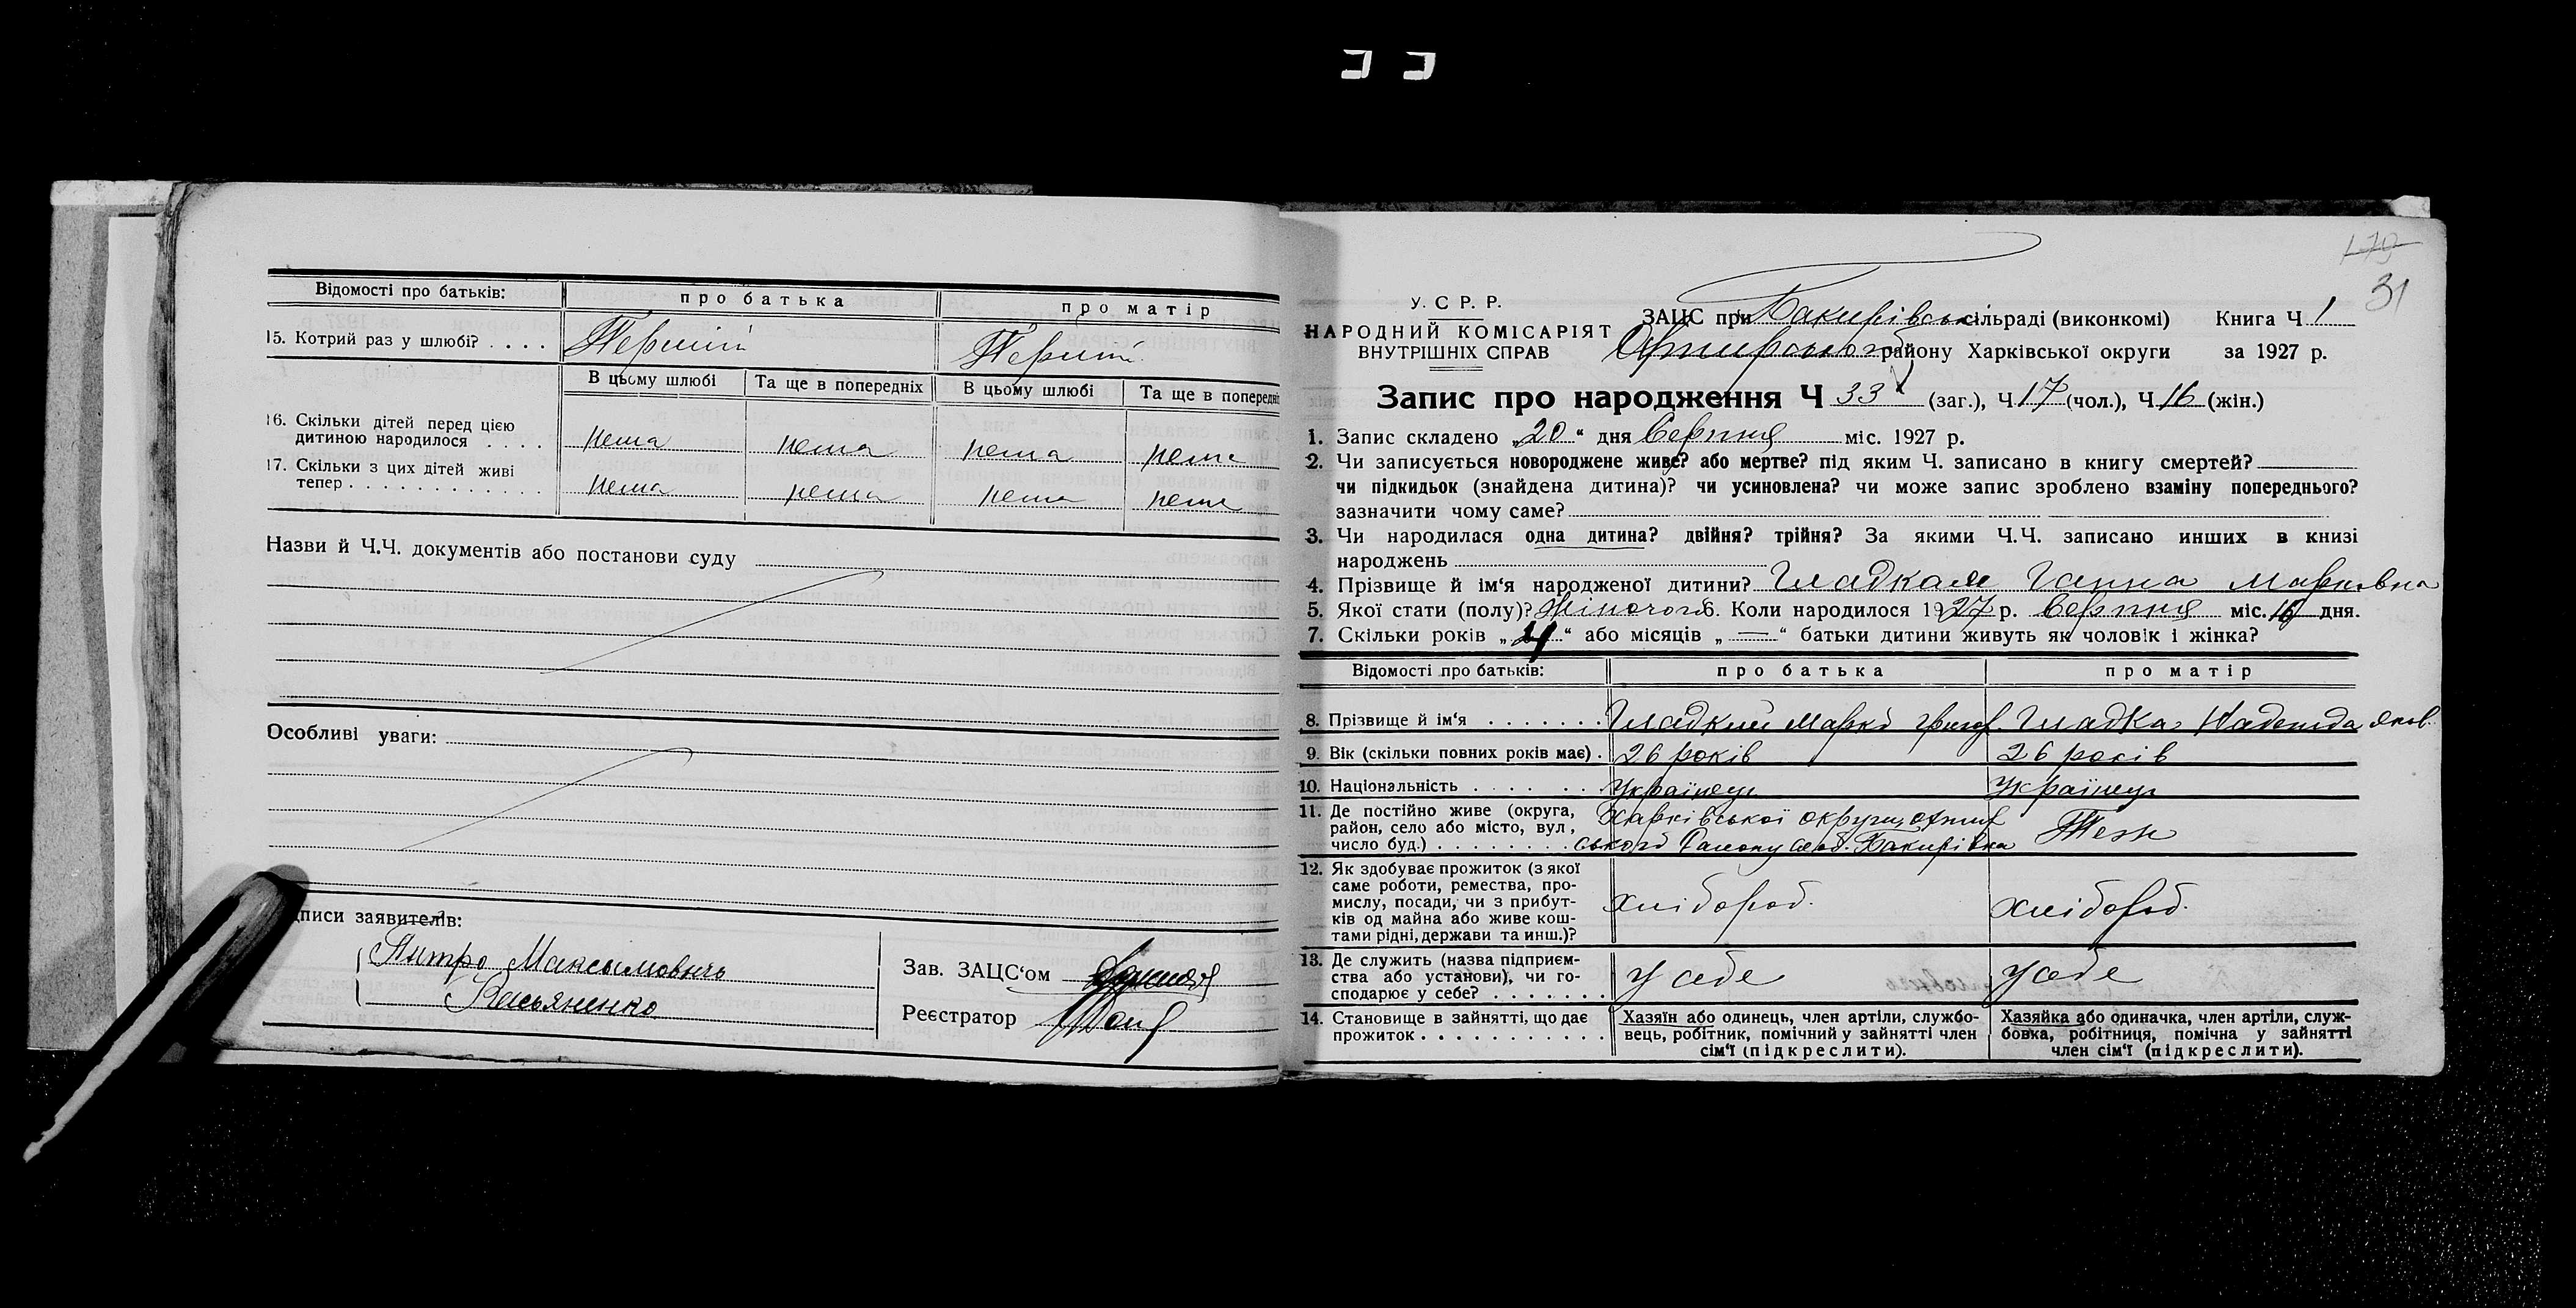 Відомості про батьків: про батька про матір
15. Котрий раз у шлюбі? . . . . Перший Перший
В цьому шлюбі Та ще в попередніх В цьому шлюбі Та ще в попередні
16. Скільки дітей перед цією
дитиною народилося . . . . нема нема нема нема
17. Скільки з цих дітей живі
тепер . . . . . . . . . . . . нема нема нема нема
Назви й Ч.Ч. документів або постанови суду
Особливі уваги:
дписи заявителів:
Антро Максымовичь
Касьяненко
Зав. ЗАЦС'ом
Реєстратор
179
31
У. С Р. Р.
НАРОДНИЙ КОМІСАРІЯТ
ВНУТРІШНІХ СПРАВ
ЗАЦС при Бакирівськ сільраді (виконкомі) Книга Ч 1
Охтирського району Харківської округи за 1927 р.
Запис про народження Ч 33 (заг.), Ч 17 (чол.), Ч 16 (жін.)
1. Запис складено „20“ дня Серпня міс. 1927 р.
2. Чи записується новороджене живе? або мертве? під яким Ч. записано в книгу смертей?
чи підкидьок (знайдена дитина)? чи усиновлена? чи може запис зроблено взаміну попереднього?
зазначити чому саме?
3. Чи народилася одна дитина? двійня? трійня? За якими Ч.Ч. записано инших в книзі
народжень
4. Прізвище й ім'я народженої дитини? Гладкая Ганна Марковна
5. Якої стати (полу)? Жіночого 6. Коли народилося 1927 р. Серпня міс. 16 дня.
7. Скільки років „4“ або місяців „—“ батьки дитини живуть як чоловік і жінка?
Відомості про батьків: про батька про матір
8. Прізвище й ім'я . . . . . . . Гладкий Марко Григор. Гладка Надежда Яков.
9. Вік (скільки повних років має) . 26 років 26 років
10. Національність . . . . . . Українець Українець
11. Де постійно живе (округа,
район, село або місто, вул,
число буд.) . . . . . . . . Харківської округи Охтир
ського Району Слоб. Бакирівка Теж
12. Як здобуває прожиток (з якої
саме роботи, ремества, про-
мислу, посади, чи з прибут-
ків од майна або живе кош-
тами рідні, держави та инш.)? хлібороб. хлібороб.
13. Де служить (назва підприєм-
ства або установи), чи го-
сподарює у себе? . . . . . . . у себе у себе
14. Становище в зайнятті, що дає
прожиток . . . . . . . . . . .
Хазяїн або одинець, член артіли, службо-
вець, робітник, помічний у зайнятті член
сім'ї (підкреслити).
Хазяйка або одиначка, член артіли, служ-
бовка, робітниця, помічна у зайнятті
член сім'ї (підкреслити).